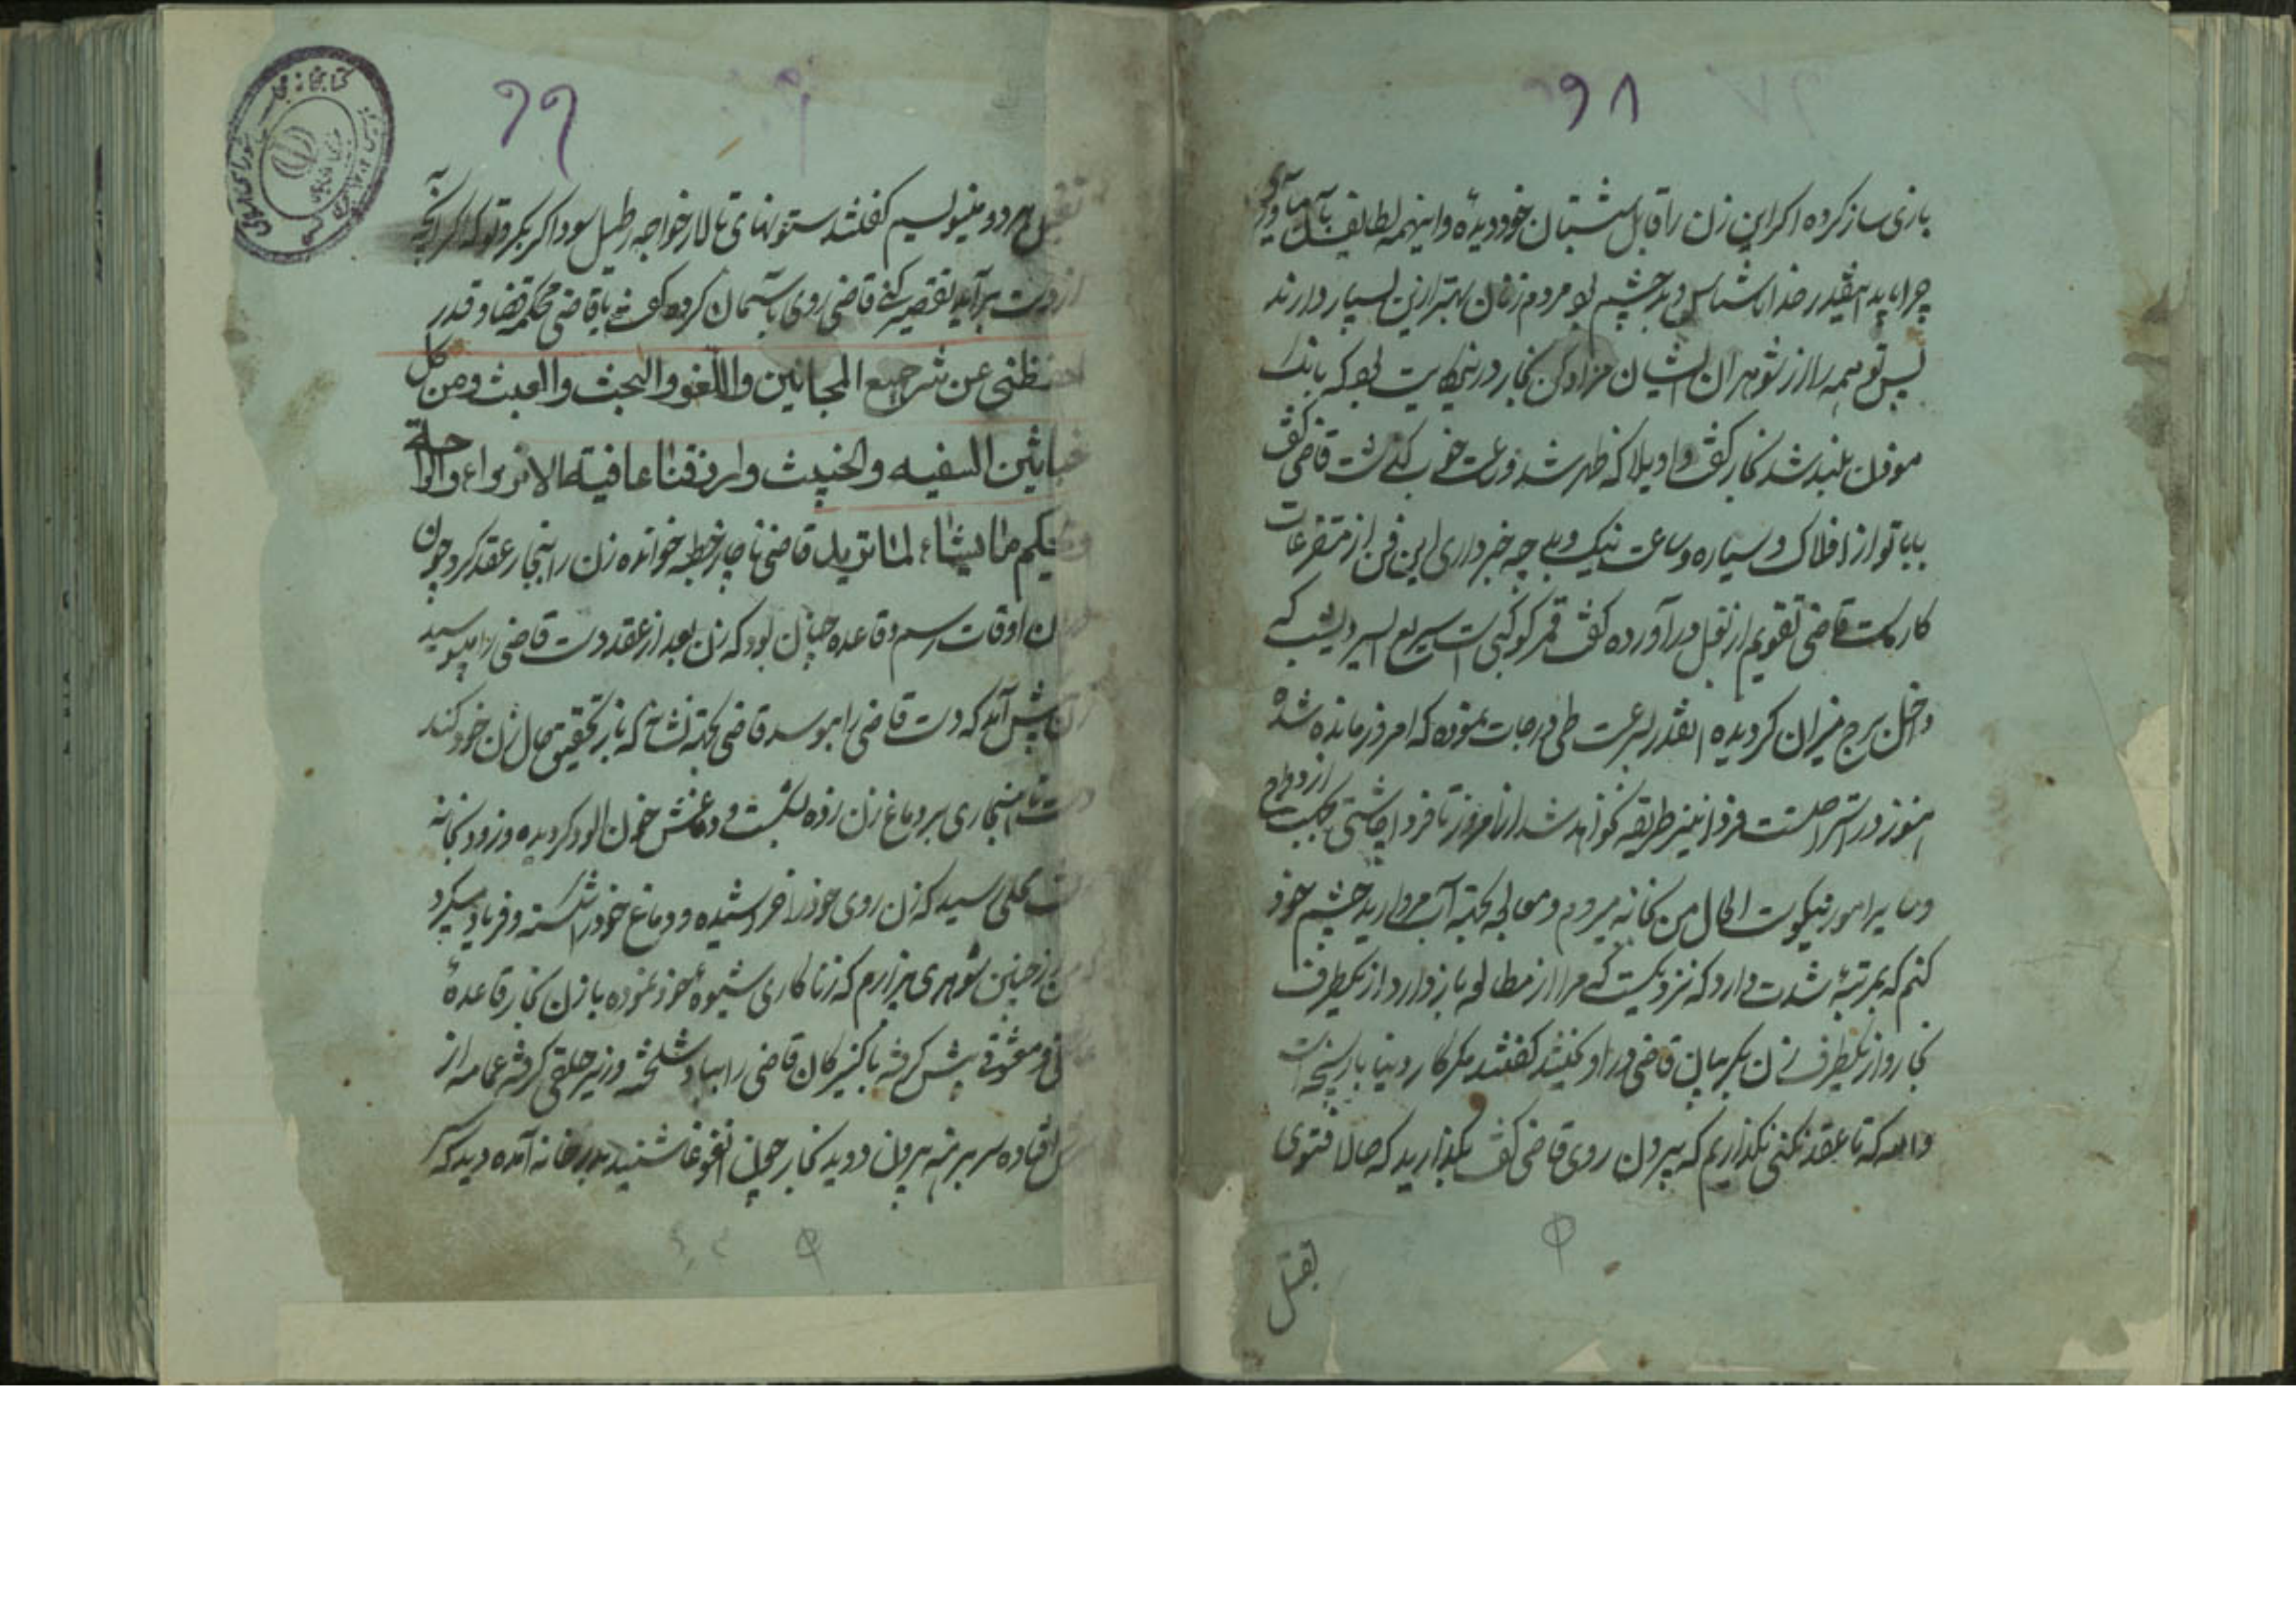 ۶۸
بازی ساز کرده اکر این زن را قابل شبستان خود دیده و اینهمه لطایف
چرا باید اینقدر خدا ناشناس و بد چشم بود مردم زنان بهتر ازین بسیار دارند
پس تو همه را از شوهران ایشان مزاد کن نجار در حکایت بود که بانک
موذن بلند شد نجار کفت واویلا که ظهر شد و ساعت خوب کذشت قاضی کفت
بابا تو از افلاک و سیاره و ساعت نیک و بد چه خبر داری این فن از متفرعات
کار ماست قاضی تقویم از بغل در آورده کفت قمر کوکبی است سریع السیر دیشب که
داخل برج میزان کردیده اینقدر بسرعت طی درجات نموده که امروز مانده شده
هنوز در استراحتست فردا نیز طریقه نخواهد شد از امروز تا فردا
ازدواج
و سایر امور نیکوست الحال من بخانه میروم و معالجه بجهة آب مروارید چشم خود
کنم که بمرتبه شدت دارد که نزدیکست که مرا از مطالعه باز دارد از یکطرف
نجار و از یکطرف زن بکریبان قاضی در آویختند کفتند مکر کار دنیا بازیچه است
والله که تا عقد نکنی نکذاریم که بیرون روی قاضی کفت بکذارید که حالا فتوی
بقتل
۶۹
بقتل هر دو مینویسیم کفتند ستونهای تالار خواجه رطیل سوداکر بکر و تو که اکر آنچه
از دست برآید تقصیر کنی قاضی روی بآسمان کرده کفت یا قاضی محکمه قضا و قدر
احفظنی عن شر جمیع المجانین واللغو والبحث والعبث ومن کل
خباثین السفیه والخبیث وارزقنا عافیته الانزواء و
ویحکم ما یشاء لما یرید قاضی ناچار خطبه خوانده زن را بنجار عقد کرد چون
اوقات رسم و قاعده چنان بود که زن بعد از عقد دست قاضی را میبوسید
زن پیش آمد که دست قاضی را ببوسد قاضی بجهة نشان که باز تحقیق حال زن خود کند
دست بر دماغ زن زده بشکست و دماغش خون آلود کردیده و زود بخانه
رسید که زن روی خود را خراشیده و دماغ خود را شکسته و فریاد میکرد
که من از چنین شوهری بیزارم که زناکاری شیوه خود نموده با زن نجار قاعده
عاشقی و معشوقی پیش کرفته با کنیزکان قاضی را بباد شلخته و زیر حلقی کرفته عمامه از
سرش افتاده سر برهنه بیرون دوید نجار چون این غوغا شنید بدر خانه آمده دید که